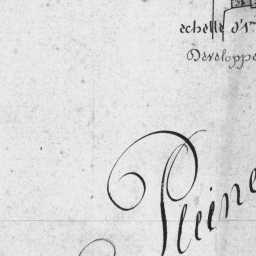 echelle d'1
Developpe
Pleine